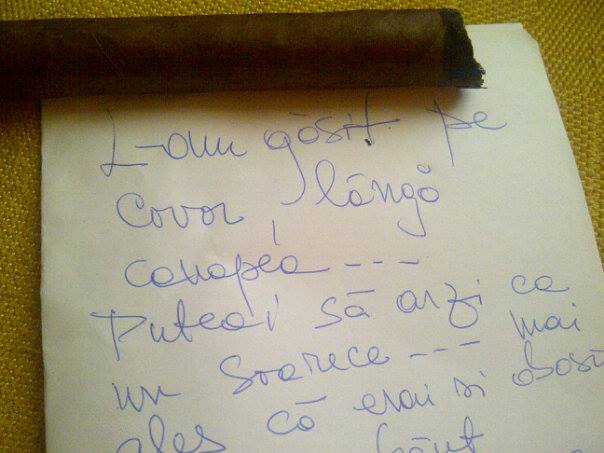 L-am găsit pe
covor, lângă
canapea ---
Puteai să arzi ca
un șoarece --- mai
ales că erai și obosit